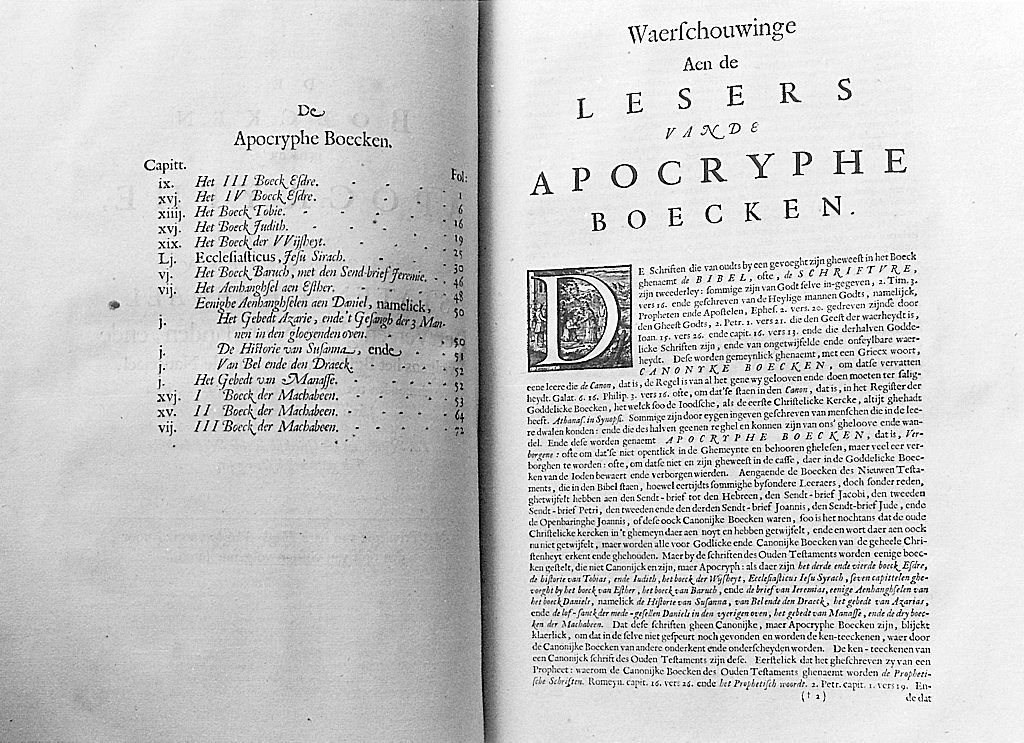 De
Apocryphe Boecken.
Capitt. Fol:
ix. Het III Boeck Esdre. 1
xvj. Het IV Boeck Esdre. 6
xiiij. Het Boeck Tobie. 16
xvj. Het Boeck Judith. 19
xix. Het Boeck der VVijsheyt. 25
Lj. Ecclesiasticus, Jesu Sirach. 30
vj. Het Boeck Baruch, met den Send-brief Jeremie. 46
vij. Het Aenhanghsel aen Esther. 48
Eenighe Aenhanghselen aen Daniel, namelick, 50
j. Het Gebedt Azarie, ende't Gesangh der 3 Man-
nen in den gloeyenden oven. 50
j. De Historie van Susanna, ende 51
j. Van Bel ende den Draeck. 52
j. Het Gebedt van Manasse. 52
xvj. I Boeck der Machabeen. 53
xv. II Boeck der Machabeen. 64
vij. III Boeck der Machabeen. 72
Waerſchouwinge
Aen de
LESERS
VANDE
APOCRYPHE
BOECKEN.
DE Schriften die van oudts by een gevoeght zijn gheweeſt in het Boeck
ghenaemt de BIBEL, ofte, de SCHRIFTVRE,
zijn tweederley: ſommige zijn van Godt ſelve in-gegeven, 2. Tim. 3.
vers 16. ende geſchreven van de Heylige mannen Godts, namelijck,
Propheten ende Apoſtelen, Epheſ. 2. vers. 20. gedreven zijnde door
den Gheeſt Godts, 2. Petr. 1. vers 21. die den Geeſt der waerheydt is,
Ioan. 15. vers 26. ende capit. 16. vers 13. ende die derhalven Godde-
licke Schriften zijn, ende van ongetwijfelde ende onfeylbare waer-
heydt. Deſe worden gemeynlick ghenaemt, met een Griecx woort,
CANONYKE BOECKEN, om datſe vervatten
eene leere die de Canon, dat is, de Regel is van al het gene wy gelooven ende doen moeten ter ſalig-
heydt. Galat. 6. 16. Philip. 3. vers 16. ofte, om dat'ſe ſtaen in den Canon, dat is, in het Regiſter der
Goddelicke Boecken, het welck ſoo de Ioodſche, als de eerſte Chriſtelicke Kercke, altijt ghehadt
heeft. Athanaſ. in Synopſi. Sommige zijn door eygen ingeven geſchreven van menſchen die in de lee-
re dwalen konden: ende die deshalven geenen reghel en konnen zijn van ons' gheloove ende wan-
del. Ende deſe worden genaemt APOCRYPHE BOECKEN, dat is, Ver-
borgene: ofte om dat'ſe niet opentlick in de Ghemeynte en behooren gheleſen, maer veel eer ver-
borghen te worden: ofte, om datſe niet en zijn gheweeſt in de caſſe, daer in de Goddelicke Boec-
ken van de Ioden bewaert ende verborgen wierden. Aengaende de Boecken des Nieuwen Teſta-
ments, die in den Bibel ſtaen, hoewel eertijdts ſommighe byſondere Leeraers, doch ſonder reden,
ghetwijfelt hebben aen den Sendt-brief tot den Hebreen, den Sendt-brief Jacobi, den tweeden
Sendt-brief Petri, den tweeden ende den derden Sendt-brief Joannis, den Sendt-brief Jude, ende
de Openbaringhe Joannis, of deſe oock Canonijke Boecken waren, ſoo is het nochtans dat de oude
Chriſtelicke kercken in't ghemeyn daer aen noyt en hebben getwijfelt, ende en wort daer aen oock
nu niet getwijfelt, maer worden alle voor Godlicke ende Canonijcke Boecken van de geheele Chri-
ſtenheyt erkent ende ghehouden. Maer by de ſchriften des Ouden Teſtaments worden eenige boec-
ken geſtelt, die niet Canonijck en zijn, maer Apocryph: als daer zijn het derde ende vierde boeck Eſdre,
de hiſtorie van Tobias, ende Iudith, het boeck der Wijſheyt, Eccleſiaſticus Ieſu Syrach, ſeven capittelen ghe-
voeght by het boeck van Eſther, het boeck van Baruch, ende de brief van Ieremias, eenige Aenhanghſelen van
het boeck Daniels, namelick de Hiſtorie van Suſanna, van Bel ende den Draeck, het gebedt van Azarias,
ende de lof-ſanck der mede-geſellen Daniels in den vyerigen oven, het gebedt van Manaſſe, ende de dry boec-
ken der Machabeen. Dat deſe ſchriften gheen Canonijke, maer Apocryphe Boecken zijn, blijckt
klaerlick, om dat in de ſelve niet geſpeurt noch gevonden en worden de ken-teeckenen, waer door
de Canonijke Boecken van andere onderkent ende onderſcheyden worden. De ken-teeckenen van
een Canonijck ſchrift des Ouden Teſtaments zijn deſe. Eerſtelick dat het gheſchreven zy van een
Propheet: waerom de Canonijke Boecken des Ouden Teſtaments ghenaemt worden de Propheti-
ſche Schriften. Romeyn. capit. 16. vers 26. ende het Prophetiſch woordt. 2. Petr. capit. 1. vers 19. En-
(† 2) de dat